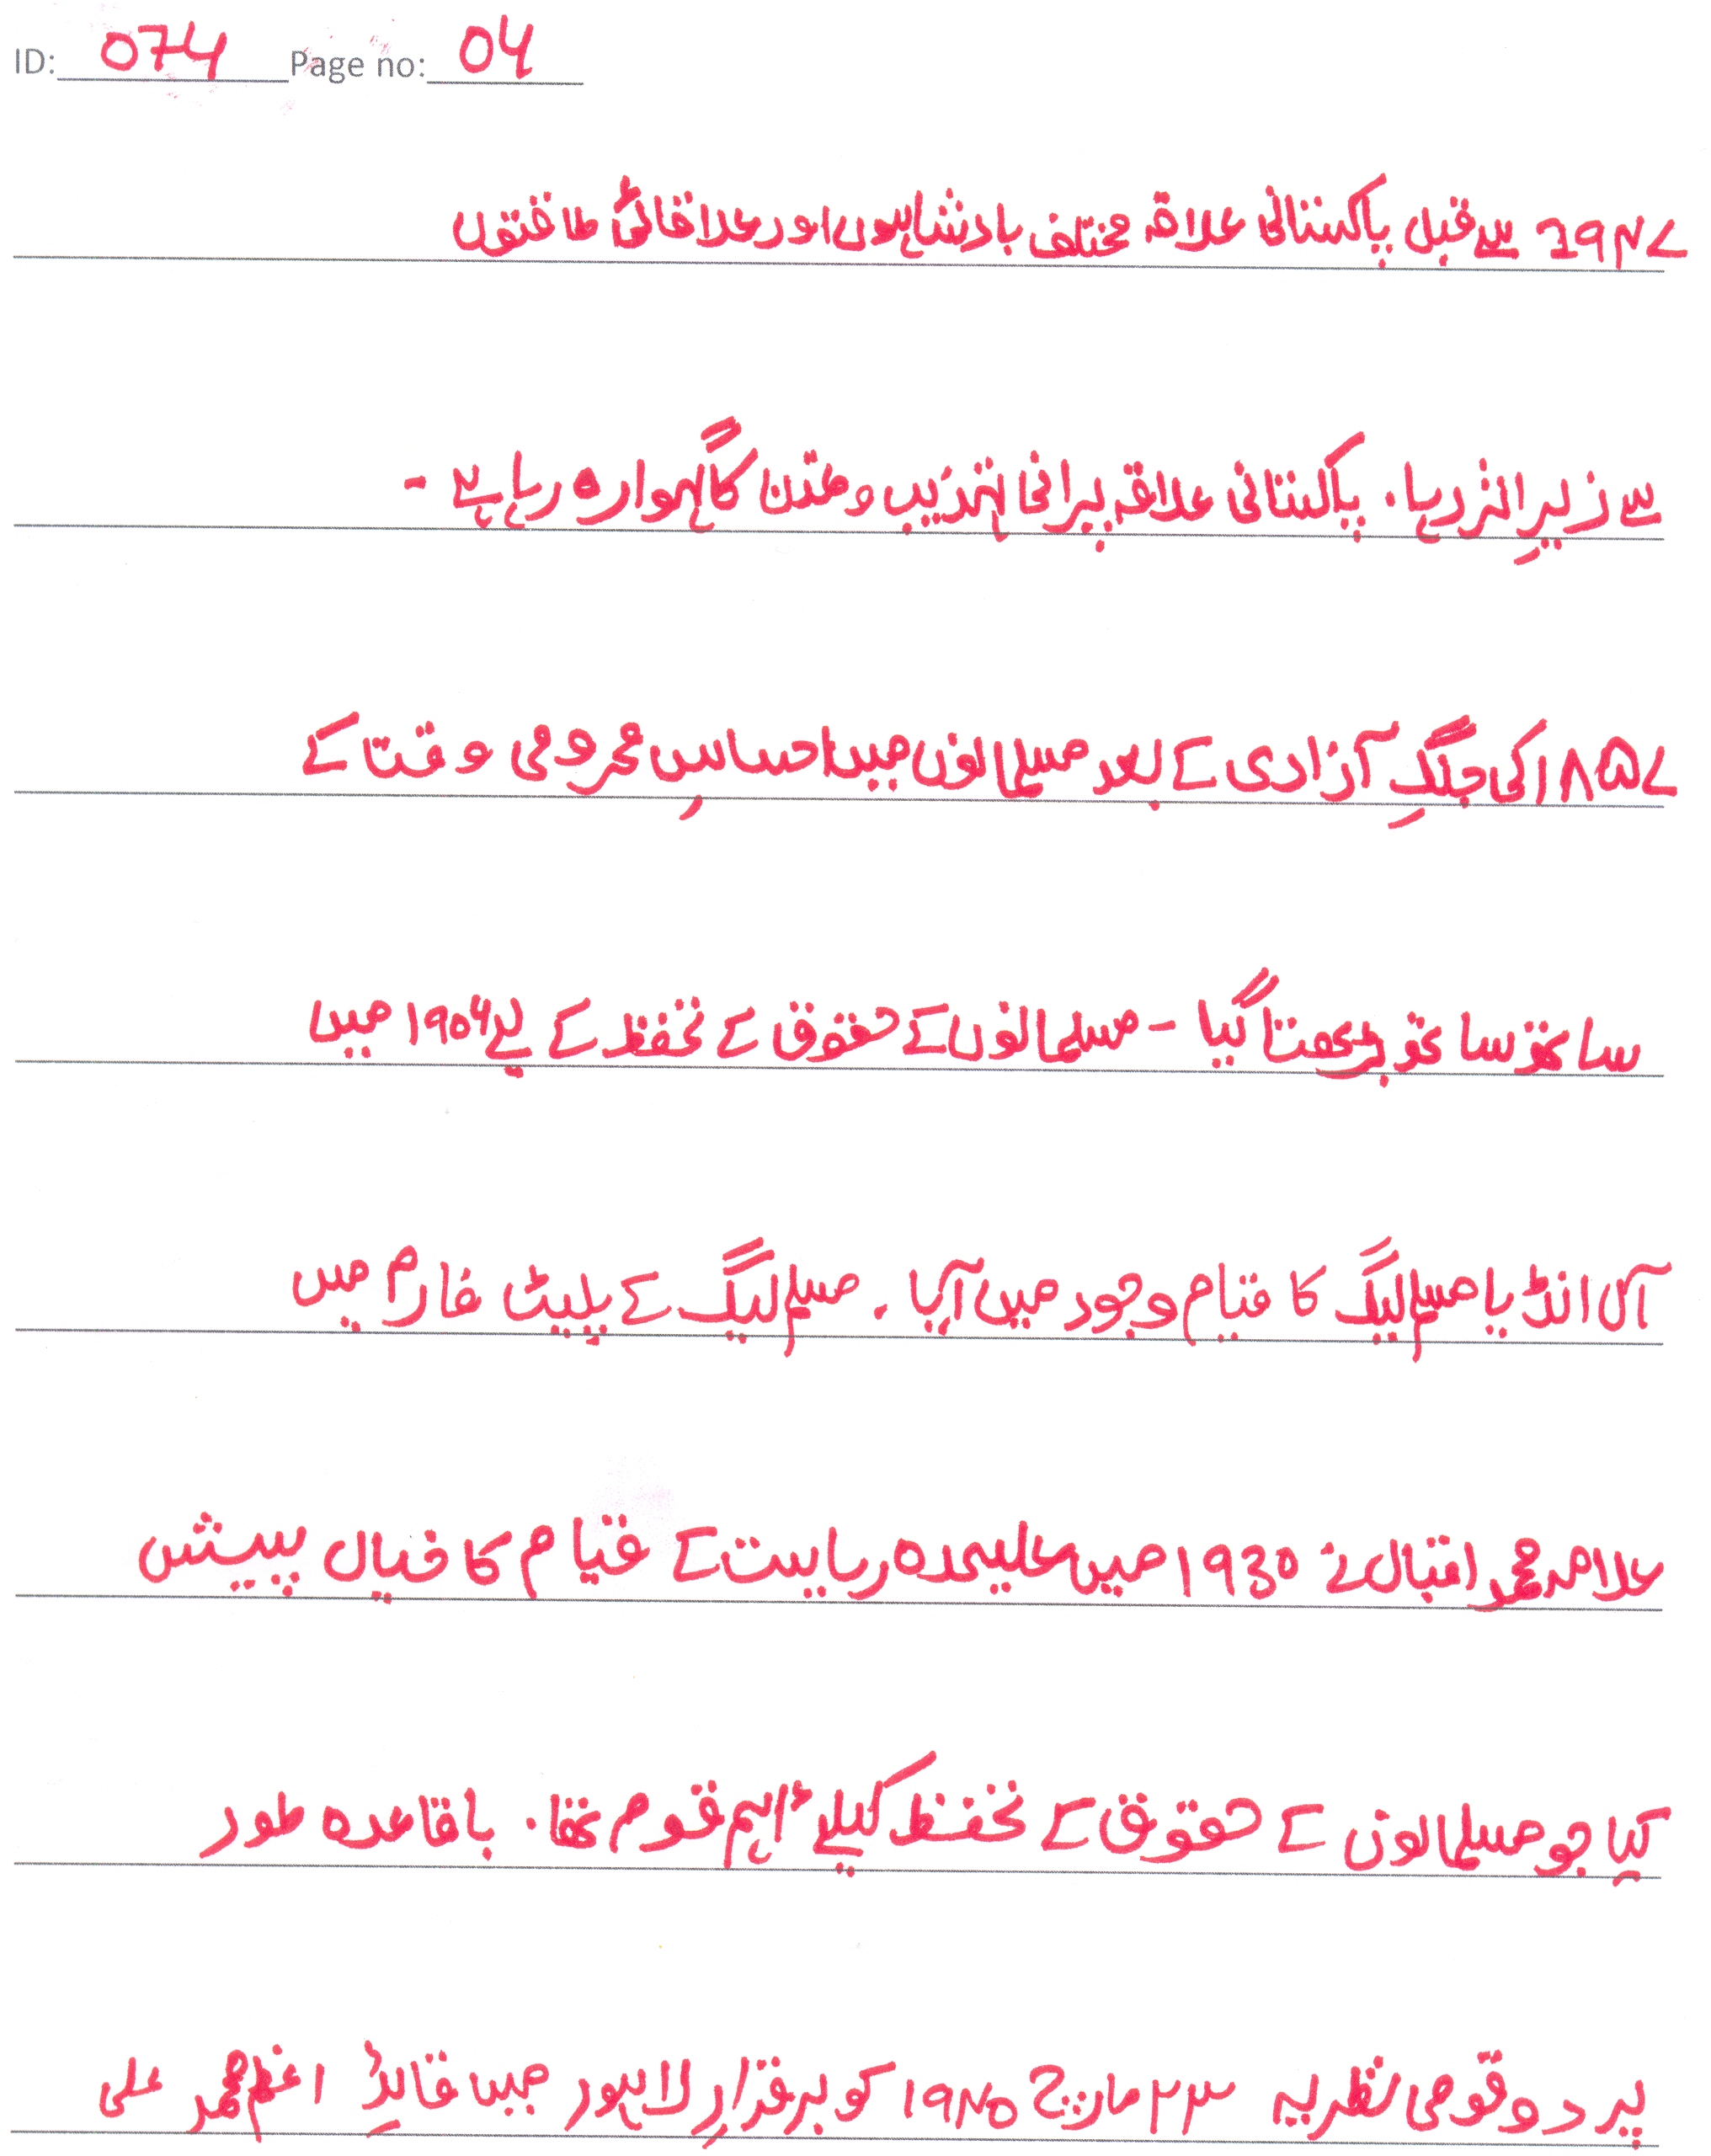 ID: 074 Page no: 04
۱۹۴۷ سے قبل پاکستانی علاقہ مختلف بادشاہوں اور علاقائی طاقتوں
سے زیرِ اثر رہا۔ پاکستانی علاقہ پرانی تہذیب و تمدن کا گہوارہ رہا ہے -
۱۸۵۷ کی جنگِ آزادی کے بعد مسلمانوں میں احساسِ محرومی وقت کے
ساتھ ساتھ بڑھتا گیا - مسلمانوں کے حقوق کے تحفظ کے لیے ۱۹۰۶ میں
آل انڈیا مسلم لیگ کا قیام وجود میں آیا۔ مسلم لیگ کے پلیٹ فارم میں
علامہ محمد اقبال نے 1930 میں علیحدہ ریاست کے قیام کا خیال پیش
کیا جو مسلمانوں کے حقوق کے تحفظ کیلئے اہم قوم تھا۔ باقاعدہ طور
پر دو قومی نظریہ ۲۳ مارچ ۱۹۴۰ کو برقرارِ لاہور میں قائدِ اعظم محمد علی